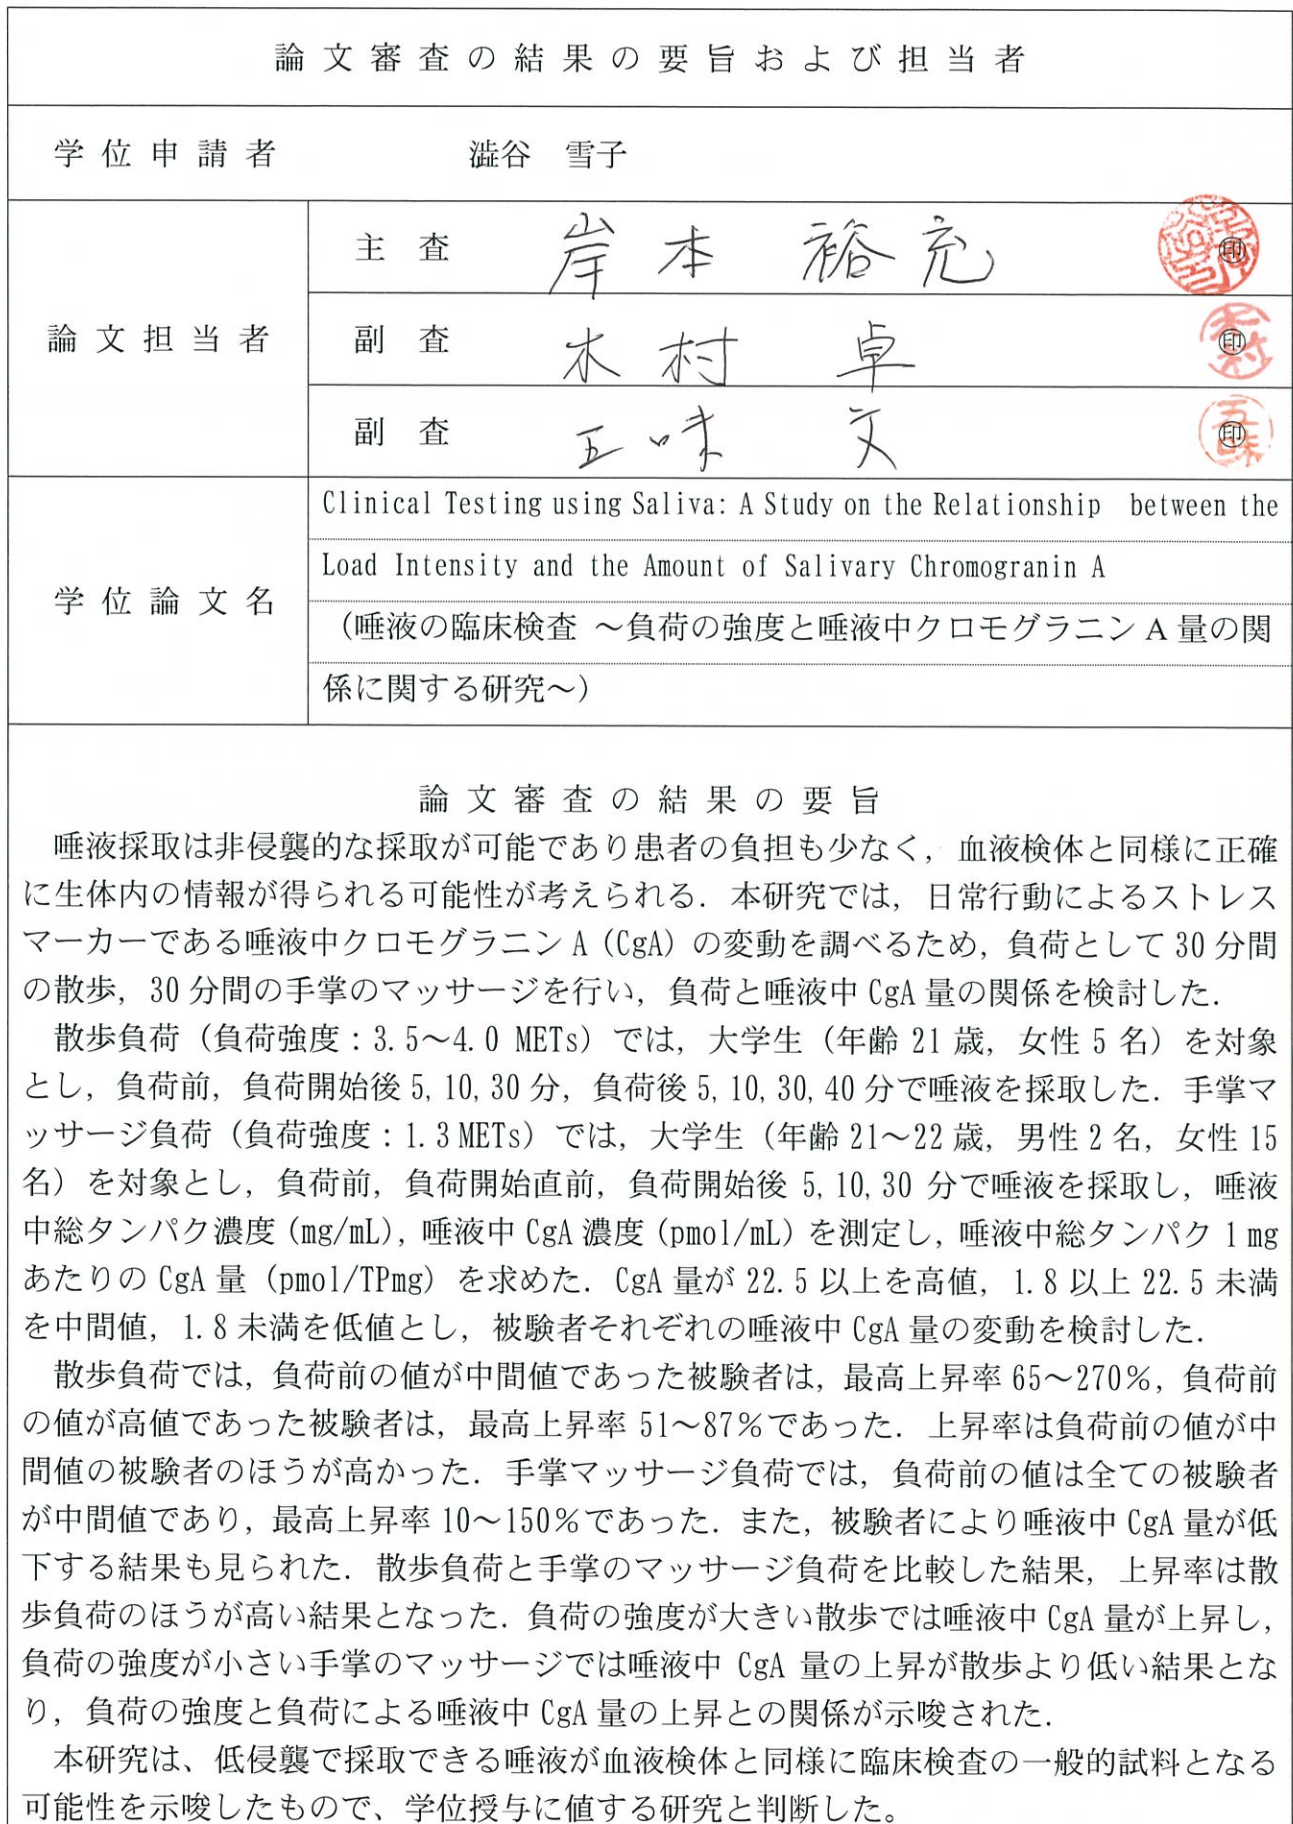 論文審査の結果の要旨および担当者
学位申請者 澁谷 雪子
論文担当者
主査 岸本 裕充 印
副査 木村 卓 印
副査 五味 文 印
学位論文名
Clinical Testing using Saliva: A Study on the Relationship between the
Load Intensity and the Amount of Salivary Chromogranin A
（唾液の臨床検査 ～負荷の強度と唾液中クロモグラニン A 量の関
係に関する研究～）
論文審査の結果の要旨
唾液採取は非侵襲的な採取が可能であり患者の負担も少なく，血液検体と同様に正確
に生体内の情報が得られる可能性が考えられる．本研究では，日常行動によるストレス
マーカーである唾液中クロモグラニン A（CgA）の変動を調べるため，負荷として 30 分間
の散歩，30 分間の手掌のマッサージを行い，負荷と唾液中 CgA 量の関係を検討した．
散歩負荷（負荷強度：3.5～4.0 METs）では，大学生（年齢 21 歳，女性 5 名）を対象
とし，負荷前，負荷開始後 5, 10, 30 分，負荷後 5, 10, 30, 40 分で唾液を採取した．手掌マ
ッサージ負荷（負荷強度：1.3 METs）では，大学生（年齢 21～22 歳，男性 2 名，女性 15
名）を対象とし，負荷前，負荷開始直前，負荷開始後 5, 10, 30 分で唾液を採取し，唾液
中総タンパク濃度 (mg/mL)，唾液中 CgA 濃度 (pmol/mL) を測定し，唾液中総タンパク 1 mg
あたりの CgA 量（pmol/TPmg）を求めた．CgA 量が 22.5 以上を高値，1.8 以上 22.5 未満
を中間値，1.8 未満を低値とし，被験者それぞれの唾液中 CgA 量の変動を検討した．
散歩負荷では，負荷前の値が中間値であった被験者は，最高上昇率 65～270％，負荷前
の値が高値であった被験者は，最高上昇率 51～87％であった．上昇率は負荷前の値が中
間値の被験者のほうが高かった．手掌マッサージ負荷では，負荷前の値は全ての被験者
が中間値であり，最高上昇率 10～150％であった．また，被験者により唾液中 CgA 量が低
下する結果も見られた．散歩負荷と手掌のマッサージ負荷を比較した結果，上昇率は散
歩負荷のほうが高い結果となった．負荷の強度が大きい散歩では唾液中 CgA 量が上昇し，
負荷の強度が小さい手掌のマッサージでは唾液中 CgA 量の上昇が散歩より低い結果とな
り，負荷の強度と負荷による唾液中 CgA 量の上昇との関係が示唆された．
本研究は、低侵襲で採取できる唾液が血液検体と同様に臨床検査の一般的試料となる
可能性を示唆したもので、学位授与に値する研究と判断した。